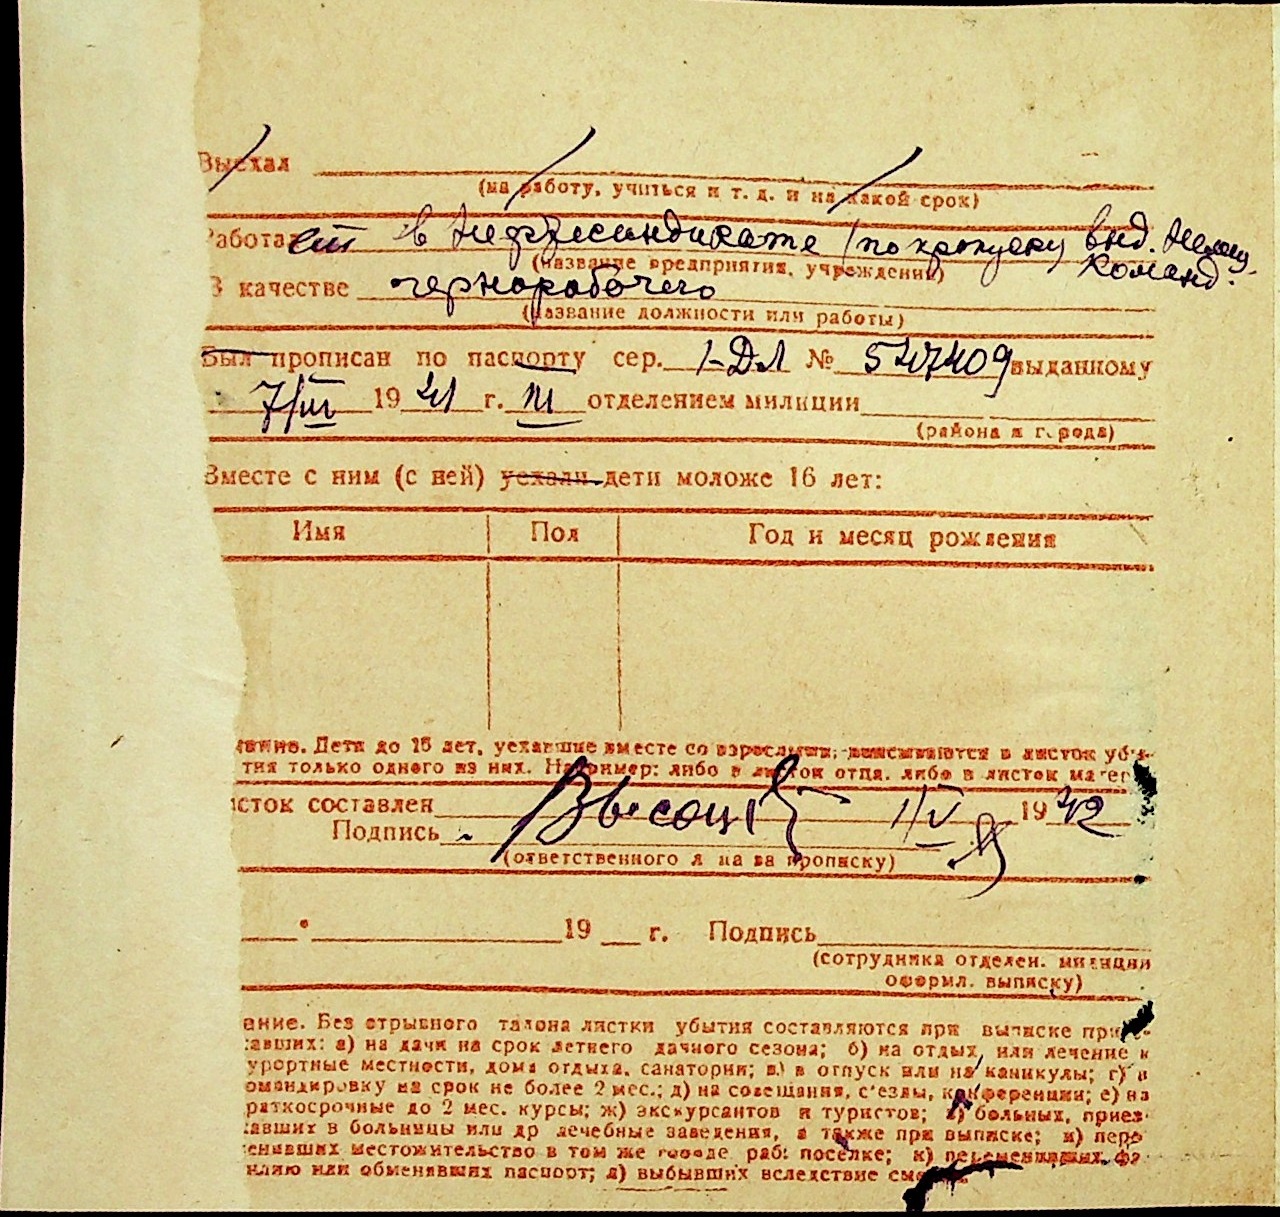 Выехал
(на работу, учиться и т. д. и на какой срок)
Работает в Нефтесиндикате (по пропуску выд. Немец.
Команд.
(название предприятия, учреждения)
В качестве чернорабочего
(название должности или работы)
Был прописан по паспорту сер. I-ДЛ № 547409 выданному
7/III 1941 г. III отделением милиции
(района и города)
Вместе с ним (с ней) уехали дети моложе 16 лет:
Имя Пол Год и месяц рождения
ание. Дети до 16 лет, уехавшие вместе со взрослыми, вписываются в листок убы-
тия только одного из них. Например: либо в листок отца, либо в листок матери
исток составлен 1/V 1942
Подпись Высоцк
(ответственного за прописку)
19 г. Подпись
(сотрудника отделен. милиции
оформл. выписку)
ание. Без отрывного талона листки убытия составляются при выписке прие-
хавших: а) на дачи на срок летнего дачного сезона; б) на отдых, или лечение в
урортные местности, дома отдыха, санатории; в) в отпуск или на каникулы; г) в
омандировку на срок не более 2 мес.; д) на совещания, с'езды, конференции; е) на
раткосрочные до 2 мес. курсы; ж) экскурсантов и туристов; з) больных, приез-
жавших в больницы или др лечебные заведения, а также при выписке; и) пере-
менивших местожительство в том же городе раб. поселке; к) переменивших фа-
илию или обменявших паспорт; л) выбывших вследствие